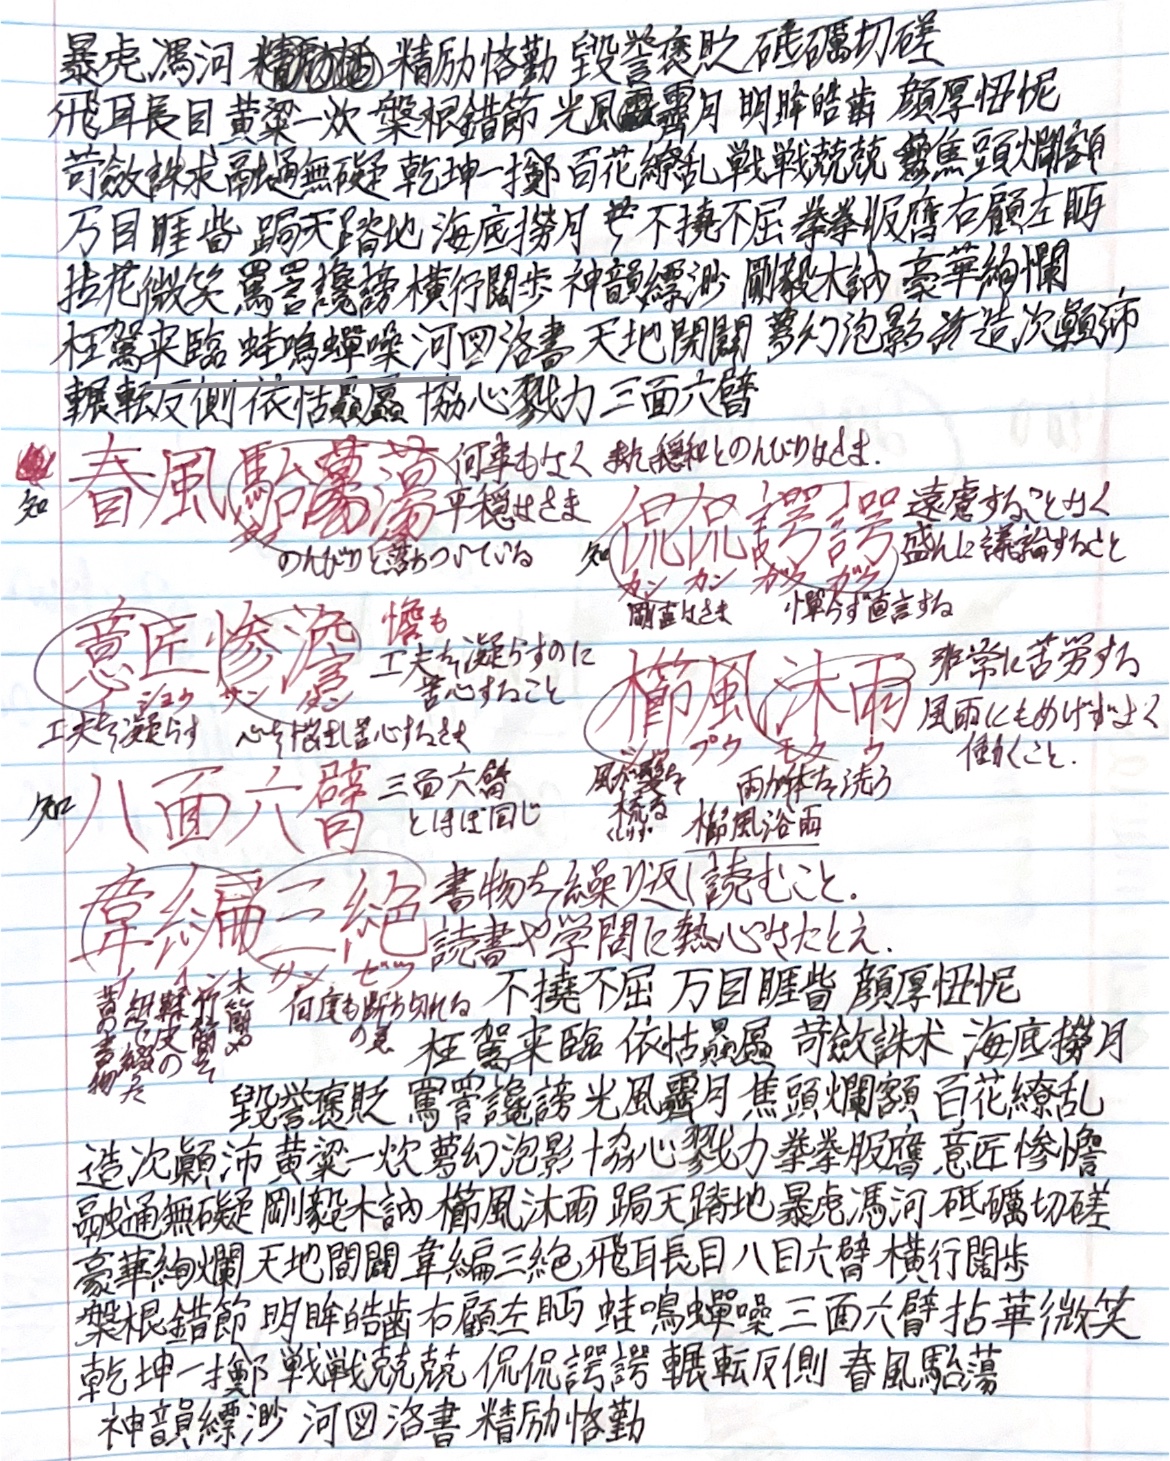 暴虎馮河 精励恪勤 毀誉褒貶 砥礪切磋
飛耳長目 黄粱一炊 槃根錯節 光風霽月 明眸皓歯 顔厚忸怩
苛斂誅求 融通無礙 乾坤一擲 百花繚乱 戦戦兢兢 焦頭爛額
万目睚眥 跼天蹐地 海底撈月 不撓不屈 拳拳服膺 右顧左眄
拈花微笑 罵詈讒謗 横行闊歩 神韻縹渺 剛毅木訥 豪華絢爛
枉駕来臨 蛙鳴蟬噪 河図洛書 天地開闢 夢幻泡影 造次顚沛
輾転反側 依怙贔屓 協心戮力 三面六臂
春風駘蕩 何事もなく また穏和とのんびりなさま.
知 平穏なさま
のんびりと落ちついている
知 侃侃諤諤 遠慮することなく
盛んに議論すること
カン カン ガク ガク
剛直なさま 憚らず直言する
意匠惨澹 憺も
工夫を凝らすのに
苦心すること
ショウ サン タン
工夫を凝らす 心を悩まし苦心するさま
櫛風沐雨 非常に苦労する
風雨にもめげずよく
働くこと.
シツ プウ モク ウ
風が髪を 梳る くしけず
雨が体を洗う
櫛風浴雨
知 八面六臂 三面六臂
とほぼ同じ
韋編三絶 書物を繰り返し読むこと.
読書や学問に熱心なたとえ.
イ ヘン サン ゼツ
木簡や
竹簡を
鞣皮の
紐で綴った
昔の書物
何度も断ち切れる
の意
不撓不屈 万目睚眥 顔厚忸怩
枉駕来臨 依怙贔屓 苛斂誅求 海底撈月
毀誉褒貶 罵詈讒謗 光風霽月 焦頭爛額 百花繚乱
造次顚沛 黄粱一炊 夢幻泡影 協心戮力 拳拳服膺 意匠惨憺
融通無礙 剛毅木訥 櫛風沐雨 跼天蹐地 暴虎馮河 砥礪切磋
豪華絢爛 天地開闢 韋編三絶 飛耳長目 八目六臂 横行闊歩
槃根錯節 明眸皓歯 右顧左眄 蛙鳴蟬噪 三面六臂 拈華微笑
乾坤一擲 戦戦兢兢 侃侃諤諤 輾転反側 春風駘蕩
神韻縹渺 河図洛書 精励恪勤